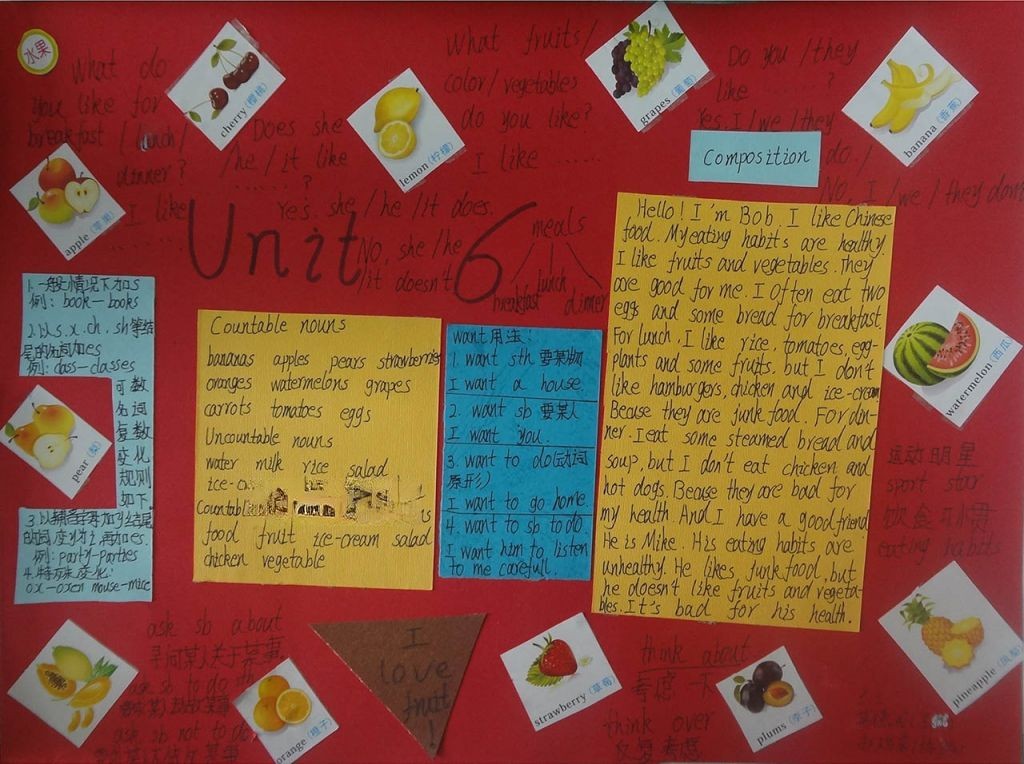 水果
What do
you like for
breakfast / lunch/
dinner?
I like
......
cherry (樱桃)
Does she
/he / it like
......?
Yes. she /he /it does.
No, she /he
/it doesn't
lemon (柠檬)
What fruits/
color/ vegetables
do you like?
I like ......
grapes (葡萄)
Do you /they
like ......?
Yes, I /we /they
do. /
No, I /we / they don't
banana (香蕉)
apple (苹果)
Unit 6
meals
breakfast lunch dinner
Composition
Hello! I'm Bob. I like Chinese
food. My eating habits are healthy.
I like fruits and vegetables. They
are good for me. I Often eat two
eggs and some bread for breakfast.
For lunch, I like rice, tomatoes, egg-
plants and some fruits, but I don't
like hamburgers, chicken and ice-cream
Becuse they are junk food. For din-
ner. I eat some steamed bread and
soup, but I don't eat chicken and
hot dogs. Becuse they are bad for
my health. And I have a good friend
He is Mike. His eating habits are
unhealthy. He likes junk food, but
he doesn't like fruits and vegeta-
bles. It's bad for his health.
1.一般情况下加s
例：book—books
2.以s.x.ch.sh等结
尾的名词加es
例：class-classes
可数
名词
复数
变化
规则
如下
pear (梨)
3.以辅音字母加y结尾
的词,变y为i,再加es.
例：party-parties
4.特殊变化:
ox-oxen mouse-mice
Countable nouns
bananas apples pears strawberries
oranges watermelons grapes
carrots tomatoes eggs
Uncountable nouns
water milk rice salad
ice-c
Countabl
food fruit ice-cream salad
chicken vegetable
want用法:
1. want sth 要某物
I want a house.
2. want sb 要某人
I want you.
3. want to do(动词
原形)
I want to go home.
4. want to sb to do.
I want him to listen
to me carefull.
watermelon (西瓜)
运动明星
sport star
饮食习惯
eating habits
pineapple (凤梨)
ask sb about
寻问某人关于某事
ask sb to do sth
ask sb not to do
orange (橙子)
I
love
fruit
!
strawberry (草莓)
think about
考虑一下
think over
反复考虑
plums (李子)